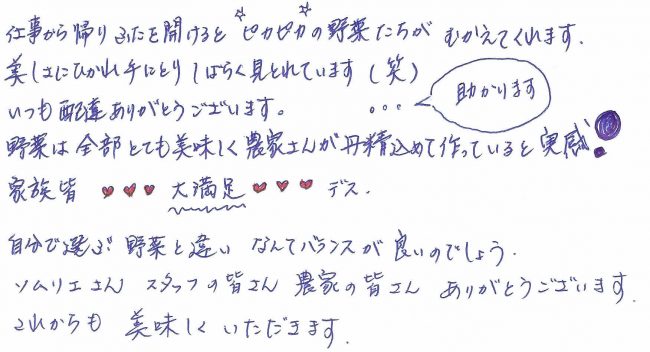 仕事から帰りふたを開けると ピカピカの野菜たちが むかえてくれます.
美しさにひかれ手にとり しばらく見とれています(笑)
いつも配達ありがとうございます。
... 助かります
野菜は全部とても美味しく農家さんが丹精込めて作っていると実感!
家族皆 ♥♥♥ 大満足 ♥♥♥ デス.
自分で選ぶ 野菜と違い なんてバランスが 良いのでしょう.
ソムリエさん スタッフの皆さん 農家の皆さん ありがとうございます.
これからも 美味しく いただきます.